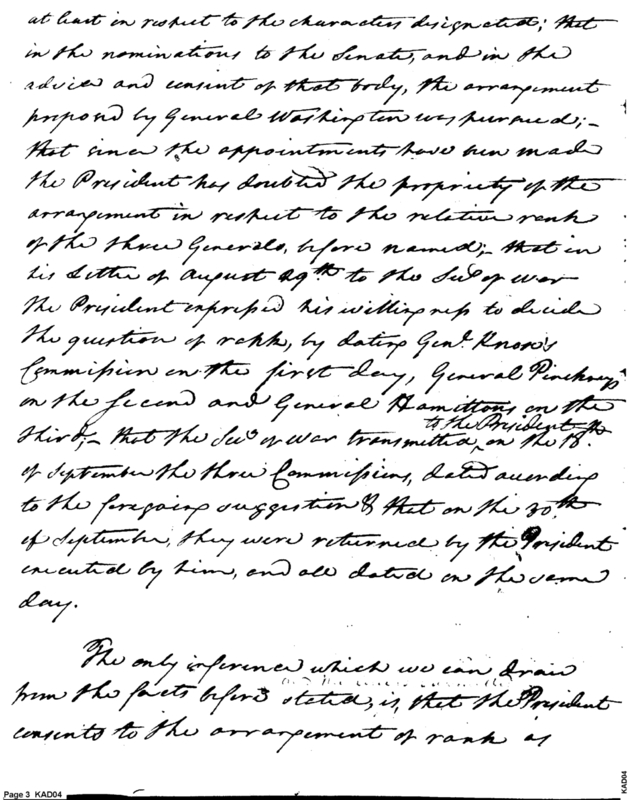 at least in respect to the characters designated; that
in the nominations to the Senate, and in the
advice and consent of that body, the arrangement
proposed by General Washington was pursued;-
that since the appointments have been made
the President has doubted the propriety of the
arrangement in respect to the relative rank
of the three Generals, before named;- that in
his Letter of August 29th to the Secy of War
the President expressed his willingness to decide
the question of rank, by dating Genl. Knox's
Commission on the first day, General Pinckneys
on the second and General Hamiltons on the
to the President
third;- that the Secy of War transmitted, on the 18th
of September the three Commissions, dated according
to the foregoing suggestion & that on the 30th
of September, they were returned by the President
executed by him, and all dated on the same
day.
The only inference which we can draw
from the facts before stated, is, that the President
consents to the arrangement of rank as
Page 3 KAD04
KAD04